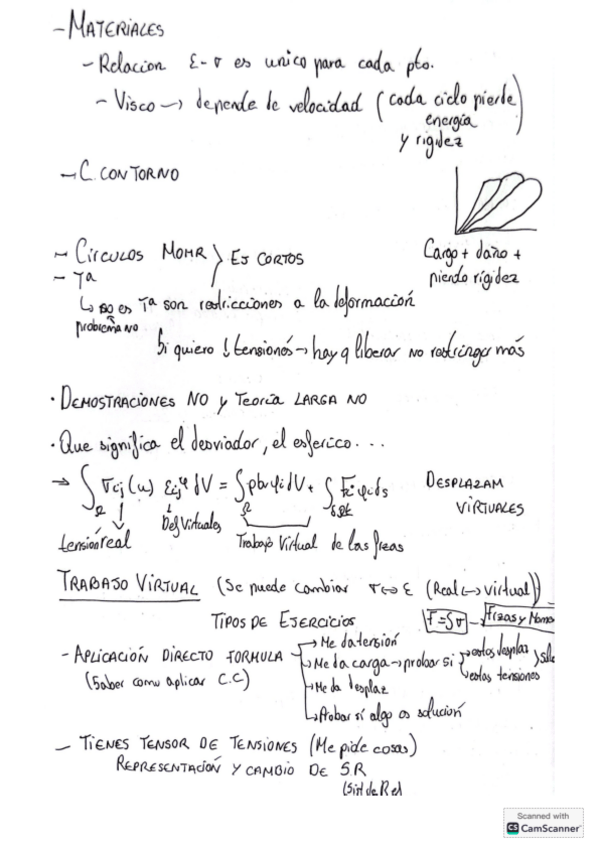 - MATERIALES
- Relacion ε-σ es unico para cada pto.
- Visco → depende de velocidad (cada ciclo pierde
energía
y rigidez)
- C. CONTORNO
- CÍRCULOS MOHR } EJ CORTOS
- Tª
Cargo + daño +
pierdo rígidez
↳ no es Tª son restricciones a la deformación
problema no
Si quiero ↓ tensiones → hay q liberar no restringer más
· DEMOSTRACIONES NO y TEORÍA LARGA NO
· Que significa el desviador, el esferico...
→ ∫Ω σij (u) εij^φ dV = ∫Ω ρbφi dV + ∫ φi ds
DESPLAZAM
VIRTUALES
tensión real
Def Virtuales
Trabajo Virtual de las fzas
TRABAJO VIRTUAL (Se puede cambiar σ↔ε (Real ↔ virtual))
TIPOS DE EJERCICIOS
F=∫σ → Fzas y Mome
- APLICACIÓN DIRECTO FORMULA
(Saber como aplicar C.C)
→ Me da tensión
→ Me da carga → probar si { → estos desplaz
→ estas tensiones
→ Me da desplaz
→ Probar si algo es solución
- TIENES TENSOR DE TENSIONES (Me pide cosas)
REPRESENTACIÓN Y CAMBIO DE SR
(Sist de Re
Scanned with
CS CamScanner